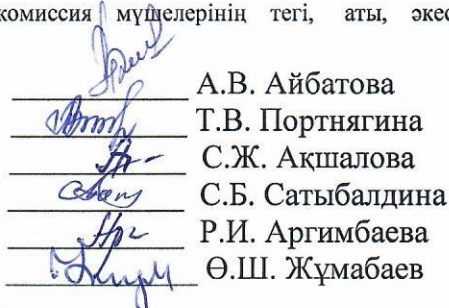 комиссия мүшелерінің тегі, аты,
А.В. Айбатова
Т.В. Портнягина
С.Ж. Ақшалова
С.Б. Сатыбалдина
Р.И. Аргимбаева
Ө.Ш. Жұмабаев